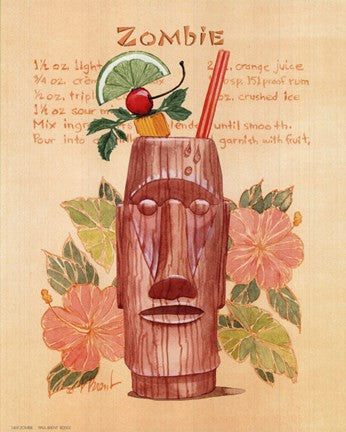 ZOMBIE
1½ oz. light 2 oz. orange juice
¾ oz. crèm sp. 151 proof rum
½ oz. tripl oz. crushed ice
1½ oz. sour m
Mix ing lende until smooth.
Pour into garnish with fruit.